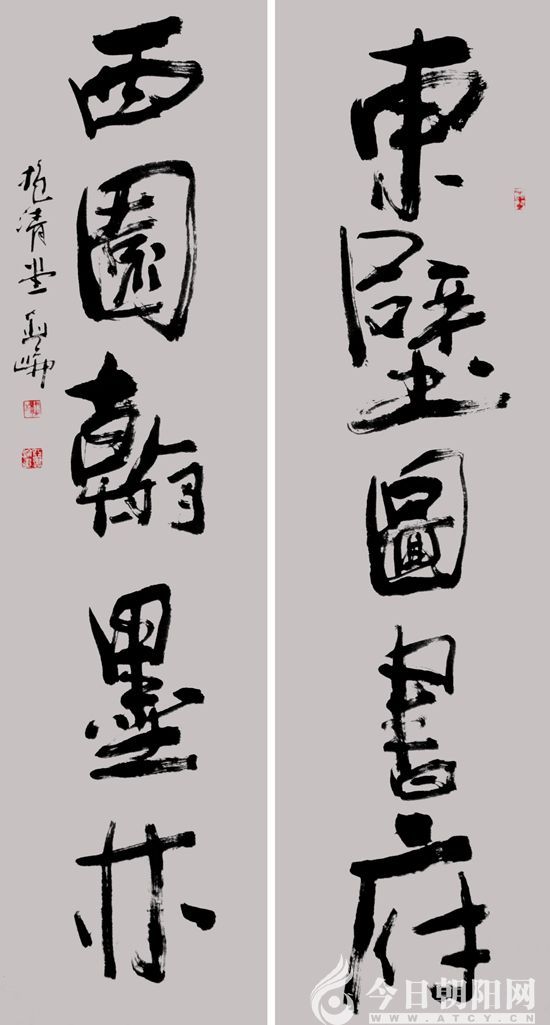 東壁圖書府
西園翰墨林
抱清堂
今日朝阳网
WWW.ATCY.CN